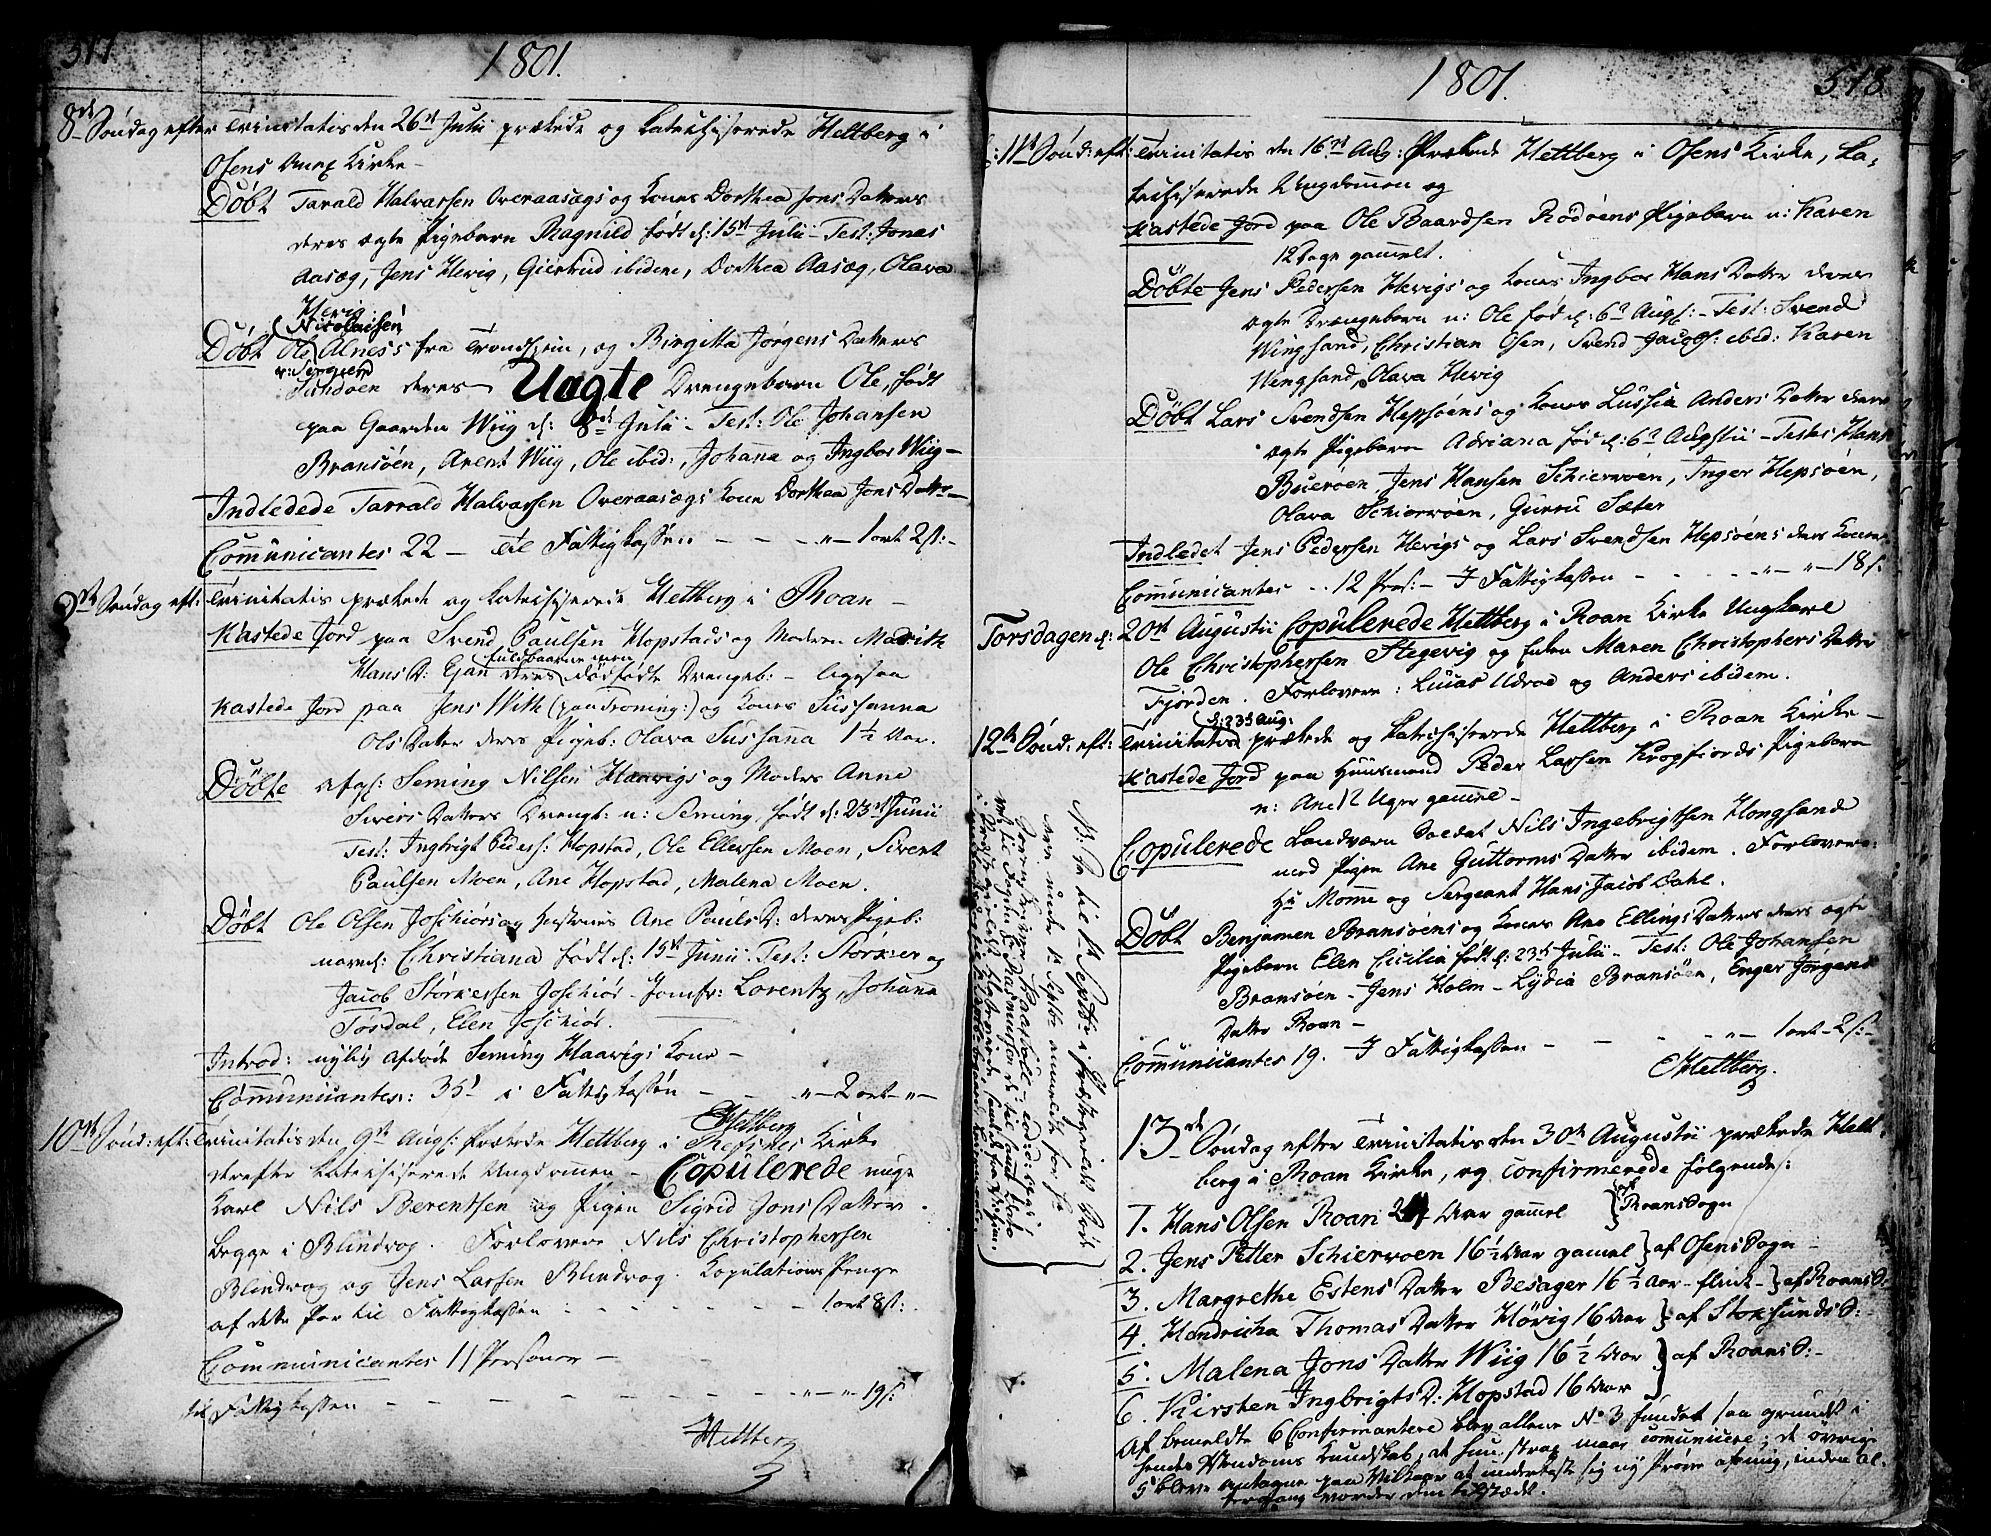 517
1801.
8de Søndag efter Trinitatis den 26de Julii prækede og Catechiserede Hettberg i
Osens Annex Kirke -
Døbt Tarald Halvarsen Overaasægs og Kones Dorthea Jons Datters
deres ægte Pigebarn Ragnild født d: 15de Julii - Test: Jonas
Aasæg, Jens Hevig, Giertrud ibidem, Dorthea Aasæg, Olava
Hevig
Døbt Ole Nicolaisen Alness fra Trondhiem, og Birgitta Jørgens Datters
Sundøen deres Uægte Drengebarn Ole, født
paa Gaarden Wiig d: 8de Julii - Test: Ole Johansen
Bransøen, Arent Wiig, Ole ibid:, Johana og Ingbor Wiig -
Indledede Tarrald Halvarsen Overaasægs Kone Dorthea Jons Datter -
Communicantes 22 - til Fattigkassen - - - „ - 1 ort 2 s: -
9de Søndag eft: Trinitatis prækede og Catechiserede Hettberg i Roan -
Kastede Jord paa Svend Paulsen Hopstads og Moderen Madrith
Hans D: deres fuldbaarne men dødfødte Drengeb: - ligesaa
Kastede Jord paa Jens With og Kones Sussanna
Ols Datter deres Pigeb: Olava Sussana 1½ Aar.
Døbte afg: Seming Nilsen Haarvigs og Moders Anne
Sivers Datters Drengeb: n: Seming, født d: 23de Junii
Test: Ingbrigt Peders: Hopstad, Ole Ellevsen Moen, Sivert
Paulsen Moen, Ane Hopstad, Malena Moen.
Døbt Ole Olsen Joschiørs og Hustrues Ane Pauls D: deres Pigeb:
navnl: Christiana født d: 15de Junii. Test: Størker og
Jacob Størkersen Joschiør - Jomfr: Lorentz, Johana
Tosdal, Elen Joschiør.
Introd: nylig afdøde Seming Haarvigs Kone -
Communicantes: 35 i Fattigkassen - - „ - 2 ort - „ -
Hettberg
10de Sønd: eft: Trinitatis den 9de Aug: Prækede Hettberg i Refsnes Kirke
derefter Catechiserede Ungdommen - Copulerede unge
Karl Nils Berentsen og Pigen Sigrid Jons Datter.
begge i Blindvog. Forlovere Nils Christophersen
Blindvog og Jens Larsen Blindvog. Kopulations Penge
af dette Par til Fattigkassen : - - - - - 1 ort 8 s: -
Communicantes 11 Personer -
til Fattigkassen - - - - - - „ - „ 19 s:
Hettberg
1801.
518
11te Sønd: eft: Trinitatis den 16de Aug: Prækede Hettberg i Osens Kirke, Ca-
techiserede Ungdommen og
Kastede Jord paa Ole Baardsen Rødøens Pigebarn n: Karen
12 Dage gammelt.
Døbte Jens Pedersen Hevigs og Kones Ingbor Hans Datter deres
ægte Drengebarn n: Ole fød d: 6te Aug: - Test: Svend
Wingsand, Christian Osen, Svend Jacobs: ibid: Karen
Wengsand, Olava Hevig
Døbt Lars Svendsen Hepsøens og Kones Lussia Anders Datter deres
ægte Pigebarn Adriana fød d: 6te Augstii - Testes Hans
Buerøen, Jens Hansen Schierwøen, Inger Hepsøen,
Olava Schierwøen, Gurru Sæter
Indledet Jens Pedersen Hevigs og Lars Svendsen Hepsøens deres Koner
Communicantes .. 12 Pers: - I Fattigkassen - - - - „ - „ - 18 s:
Torsdagen d: 20de Augustii Copulerede Hettberg i Roan Kirke Ungkarl
Ole Christophersen Stegevig og Enken Maren Christophers Datter
Fjorden. Forlovere: Lucas Udrod og Anders ibidem.
12te Sønd: eft: Trinitatis d: 23de Aug: prækede og Catechiserede Hettberg i Roan Kirke -
Kastede Jord paa Huusmand Peder Larsen Kropfiords Pigebarn
n: Ane 12 Uger gammel -
Copulerede Landværn Soldat Nils Ingebrigtsen Hongsand
med Pigen Ane Guttorms Datter ibidem. Forlovere:
Hr Monne og Sergeant Hans Jacob Dahl.
Døbt Benjamen Bransøens og Kones Ane Ellings Datters deres ægte
Pigebarn Elen Cicilia født d: 23de Julii - Test: Ole Johansen
Bransøen - Jens Holm - Lydia Bransøen, Enger Jørgens
Datter Roan -
Communicantes 19. I Fattigkassen - - - - - „ - 1 ort - 2 s:
Hettberg.
13de Søndag efter Trinitatis den 30te Augustii prækede Hett-
berg i Roan Kirke, og confirmerede følgende:
1. Hans Olsen Roan Aar gammel } af Roans Sogn
2. Jens Petter Schierwoen 16½ Aar gamel } af Osens Sogn -
3. Margrethe Estens Datter Besager 16½ Aar - flink - } af Roans S:
4. Hendricha Thomas Datter Hövig 16 Aar } af Stoksunds S:
5. Malena Jons Datter Wiig 16½ Aar } af Roans S: -
6. Kirsten Ingbrigts D: Hopstad 16 Aar
Af bemeldte 6 Confirmantere blev allene No 3 fundet saa grundet i
hendes Christendoms Kundskab, at hun strax maae communicere; de øvrige
5 bleve antagne paa Vilkaar at underkaste sig ny Prøve
vorder dem tilstædt.